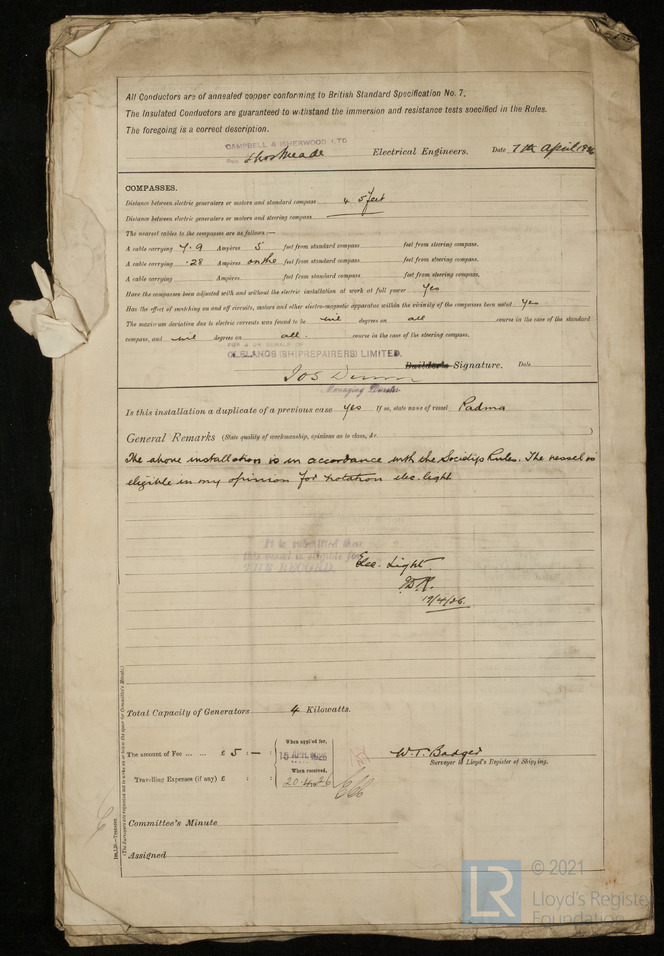 All Conductors are of annealed copper conforming to British Standard Specification No. 7.
The Insulated Conductors are guaranteed to withstand the immersion and resistance tests specified in the Rules.
The foregoing is a correct description.
CAMPBELL & ISHERWOOD LTD
Thos Meade Electrical Engineers. Date 7th April 1926
COMPASSES.
Distance between electric generators or motors and standard compass 45 feet
Distance between electric generators or motors and steering compass
The nearest cables to the compasses are as follows:—
A cable carrying 7.9 Ampères 5 feet from standard compass feet from steering compass.
A cable carrying .28 Ampères on the feet from standard compass feet from steering compass.
A cable carrying Ampères feet from standard compass feet from steering compass.
Have the compasses been adjusted with and without the electric installation at work at full power Yes
Has the effect of switching on and off circuits, motors and other electro-magnetic apparatus within the vicinity of the compasses been noted yes
The maximum deviation due to electric currents was found to be nil degrees on all course in the case of the standard
compass, and nil degrees on all. course in the case of the steering compass.
FOR & ON BEHALF OF
CLELANDS (SHIPREPAIRERS) LIMITED.
Builder's Signature. Date
Managing Director
Is this installation a duplicate of a previous case yes If so, state name of vessel Padma
General Remarks (State quality of workmanship, opinions as to class, &c. )
The above installation is in accordance with the Society's Rules. The vessel is
eligible in my opinion for notation elec. light
It is submitted that
this vessel is eligible for
THE RECORD. Elec. Light.
19/4/26.
Total Capacity of Generators 4 Kilowatts.
The amount of Fee ... ... £ 5 : — :
When applied for,
15 APR. 1926
When received,
20.4.26
Travelling Expenses (if any) £ : :
W. T. Badger
Surveyor to Lloyd's Register of Shipping.
Committee's Minute
Assigned
(The Surveyors are requested not to write on or below the space for Committee's Minute.)
© 2021
LR Lloyd's Register
Foundation